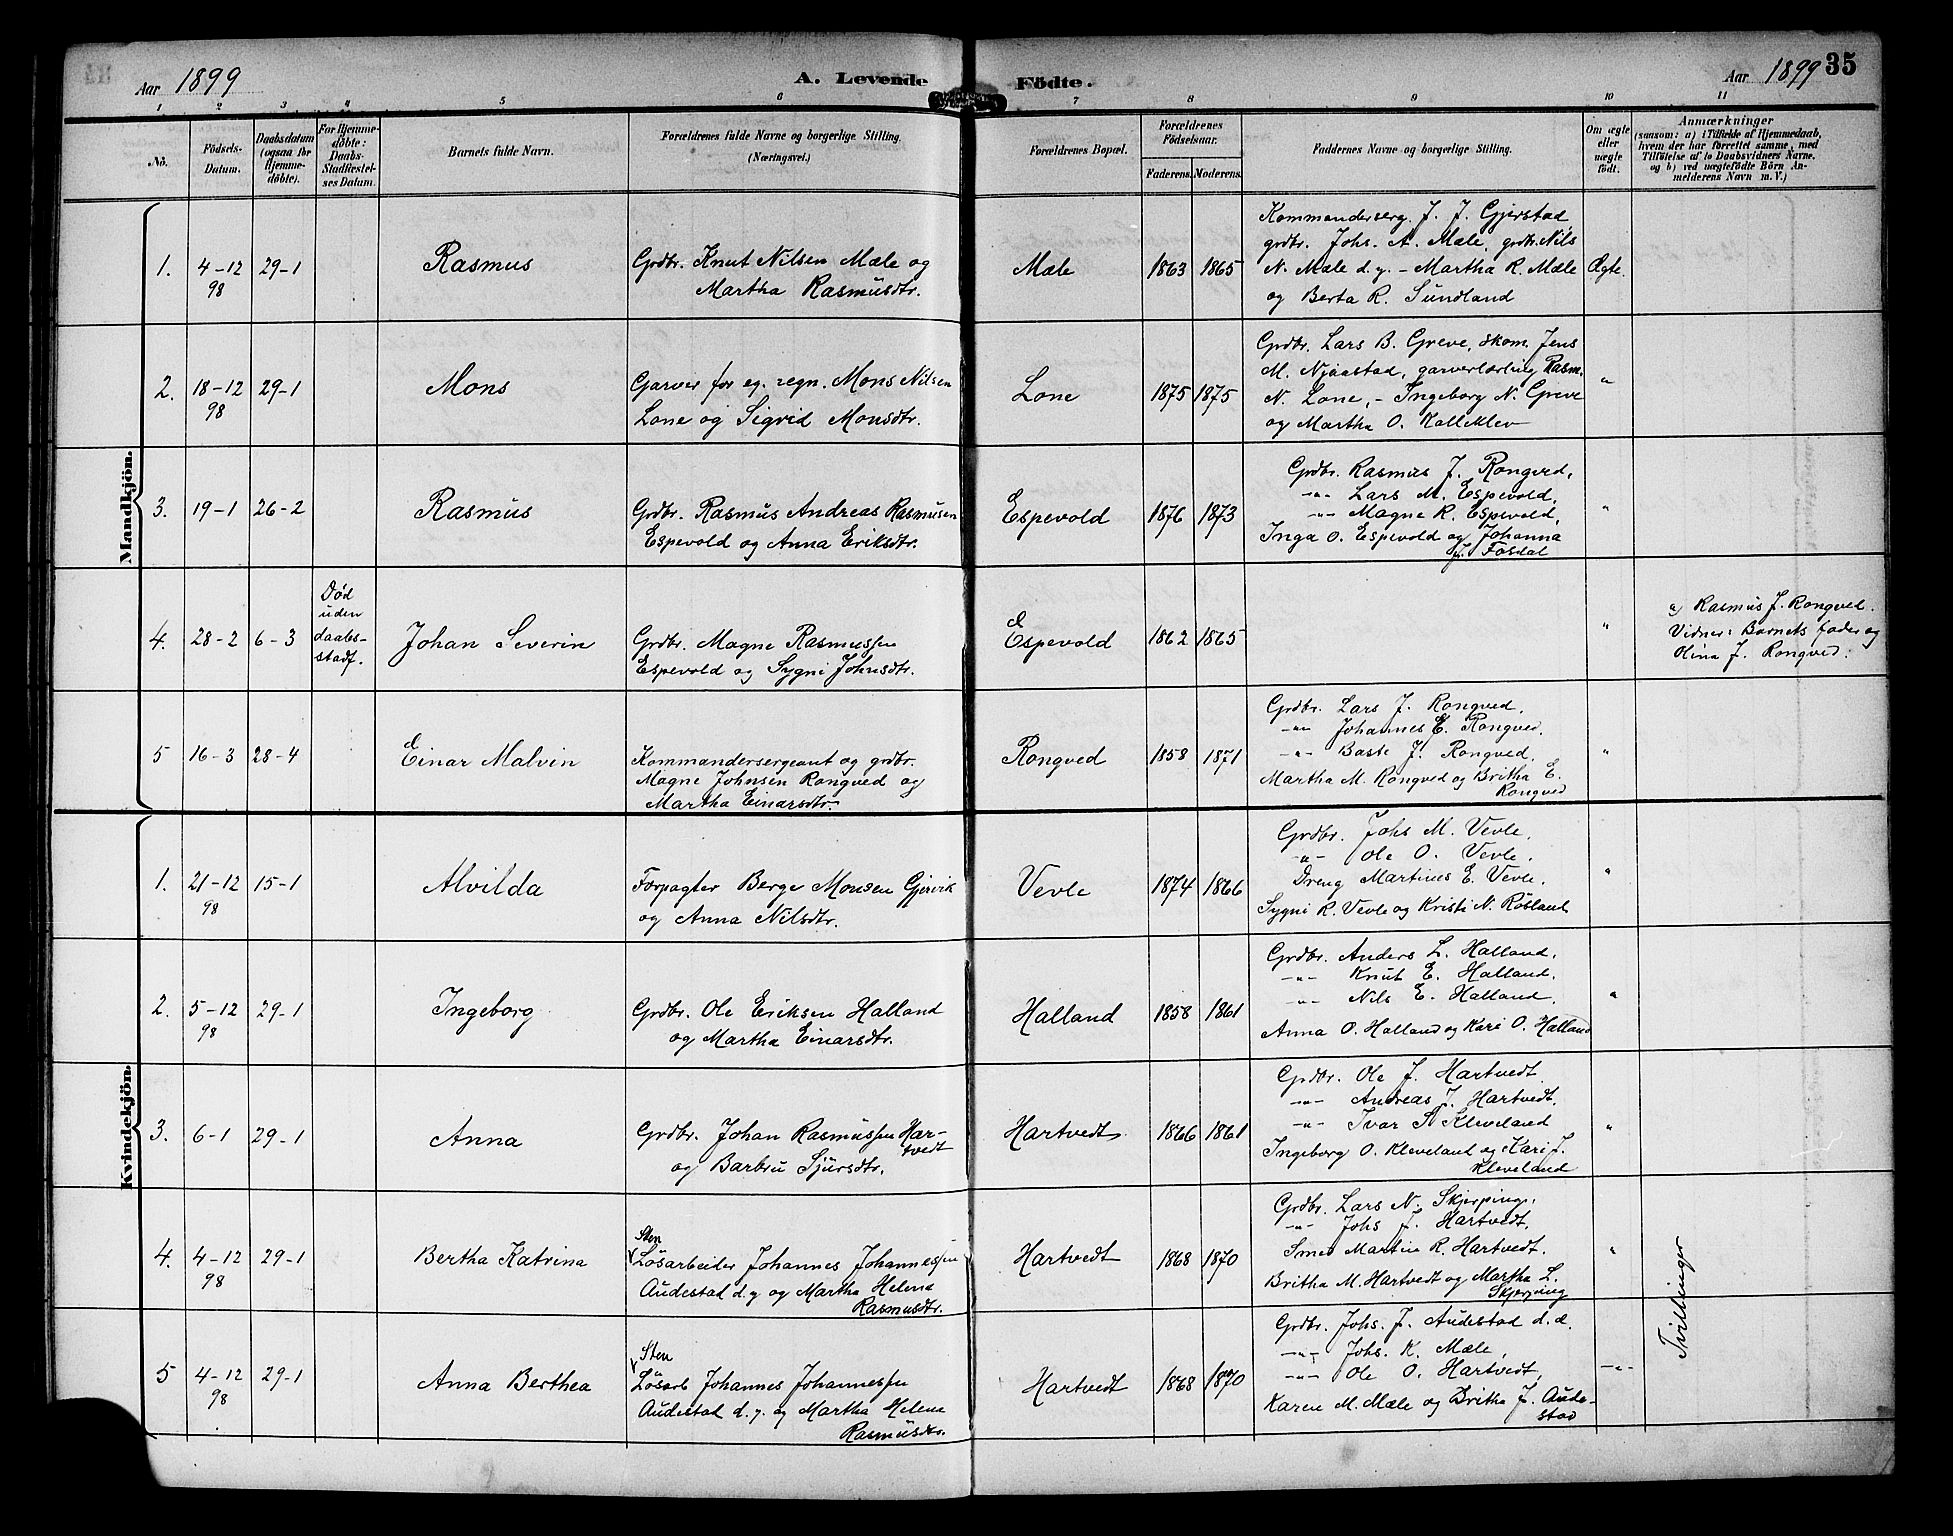 Aar 1899
A. Levende Födte.
Aar 1899 35
1 2 3 4 5 6 7 8 9 10 11
No.
Födsels-
Datum.
Daabsdatum
(ogsaa for
Hjemme-
döbte).
For Hjemme-
döbte:
Daabs-
Stadfæstel-
ses Datum.
Barnets fulde Navn.
Forældrenes fulde Navne og borgerlige Stilling.
(Næringsvei.)
Forældrenes Bopæl.
Forældrenes
Födselsaar.
Faderens. Moderens.
Faddernes Navne og borgerlige Stilling.
Om ægte
eller
uægte
födt.
Anmærkninger
(saasom: a) i Tilfælde af Hjemmedaab,
hvem der har forrettet samme, med
Tilföielse af to Daabsvidners Navne,
og b) ved uægtefödte Börn An-
melderens Navn m. V.)
Mandkjön.
1. 4-12 98 29-1 Rasmus
Grdbr. Knut Nilsen Mæle og
Martha Rasmusdtr.
Mæle 1863 1865
Kommanderserg. J. J. Gjerstad
grdbr. Johs. A. Mæle, grdbr. Nils
N. Mæle d.y. - Martha R. Mæle
og Berta R. Sundland
Ægte.
2. 18-12 98 29-1 Mons
Garver for eg. regn. Mons Nilsen
Lone og Sigrid Monsdtr.
Lone 1875 1875
Grdbr. Lars B. Greve, skom. Jens
M. Njaastad, garverlærling Rasm.
N. Lone, - Ingeborg N. Greve
og Martha O. Kalleklev
"
3. 19-1 26-2 Rasmus
Grdbr. Rasmus Andreas Rasmusen
Espevold og Anna Eriksdtr.
Espevold 1876 1873
Grdbr. Rasmus J. Rongved,
-"- Lars M. Espevold,
-"- Magne R. Espevold,
Inga O. Espevold og Johanna
J. Fosdal
"
4. 28-2 6-3
Död
uden
daabs-
stadf.
Johan Severin
Grdbr. Magne Rasmussen
Espevold og Sygni Johnsdtr.
Espevold 1862 1865
"
a) Rasmus J. Rongved.
Vidner: Barnets fader og
Olina J. Rongved.
5 16-3 28-4 Einar Malvin
Kommandersergeant og grdbr.
Magne Johnsen Rongved og
Martha Einarsdtr.
Rongved 1858 1871
Grdbr. Lars J. Rongved,
-"- Johannes E. Rongved,
-"- Baste J. Rongved,
Martha M. Rongved og Britha E.
Rongved
"
Kvindekjön.
1. 21-12 98 15-1 Alvilda
Forpagter Berge Monsen Gjervik
og Anna Nilsdtr.
Vevle 1874 1866
Grdbr. Johs M. Vevle,
-"- Ole O. Vevle,
Dreng Martines E. Vevle,
Sygni R. Vevle og Kristi N. Røsland
"
2. 5-12 98 29-1 Ingeborg
Grdbr. Ole Eriksen Halland
og Martha Einarsdtr.
Halland 1858 1861
Grdbr. Anders L. Halland,
-"- Knut E. Halland.
-"- Nils E. Halland,
Anna O. Halland og Kari O. Halland
"
3. 6-1 29-1 Anna
Grdbr. Johan Rasmussen Har-
tvedt
og Barbru Sjursdtr.
Hartvedt 1866 1861
Grdbr. Ole J. Hartvedt
-"- Andreas J. Hartvedt,
-"- Ivar S. Kleveland
Ingeborg O. Kleveland og Kari J.
Kleveland
"
4. 4-12 98 29-1 Bertha Katrina
Sten
Løsarbeider Johannes Johannessen
Audestad d.y og Martha Helena
Rasmusdtr.
Hartvedt 1868 1870
Grdbr. Lars N. Skjerping,
-"- Johs J. Hartvedt,
Smed Martin R. Hartvedt,
Britha M. Hartvedt og Martha L.
Skjerping
"
Tvillinger
5 4-12 98 29-1 Anna Berthea
Sten
Løsarb Johannes Johannessen
Audestad d.y. og Martha Helena
Rasmusdtr.
Hartvedt 1868 1870
Grdbr. Johs. J. Audestad d.æ.
-"- Johs. K. Mæle,
-"- Ole O. Hartvedt,
Karen M. Mæle og Britha J. Aude-
stad
-"-